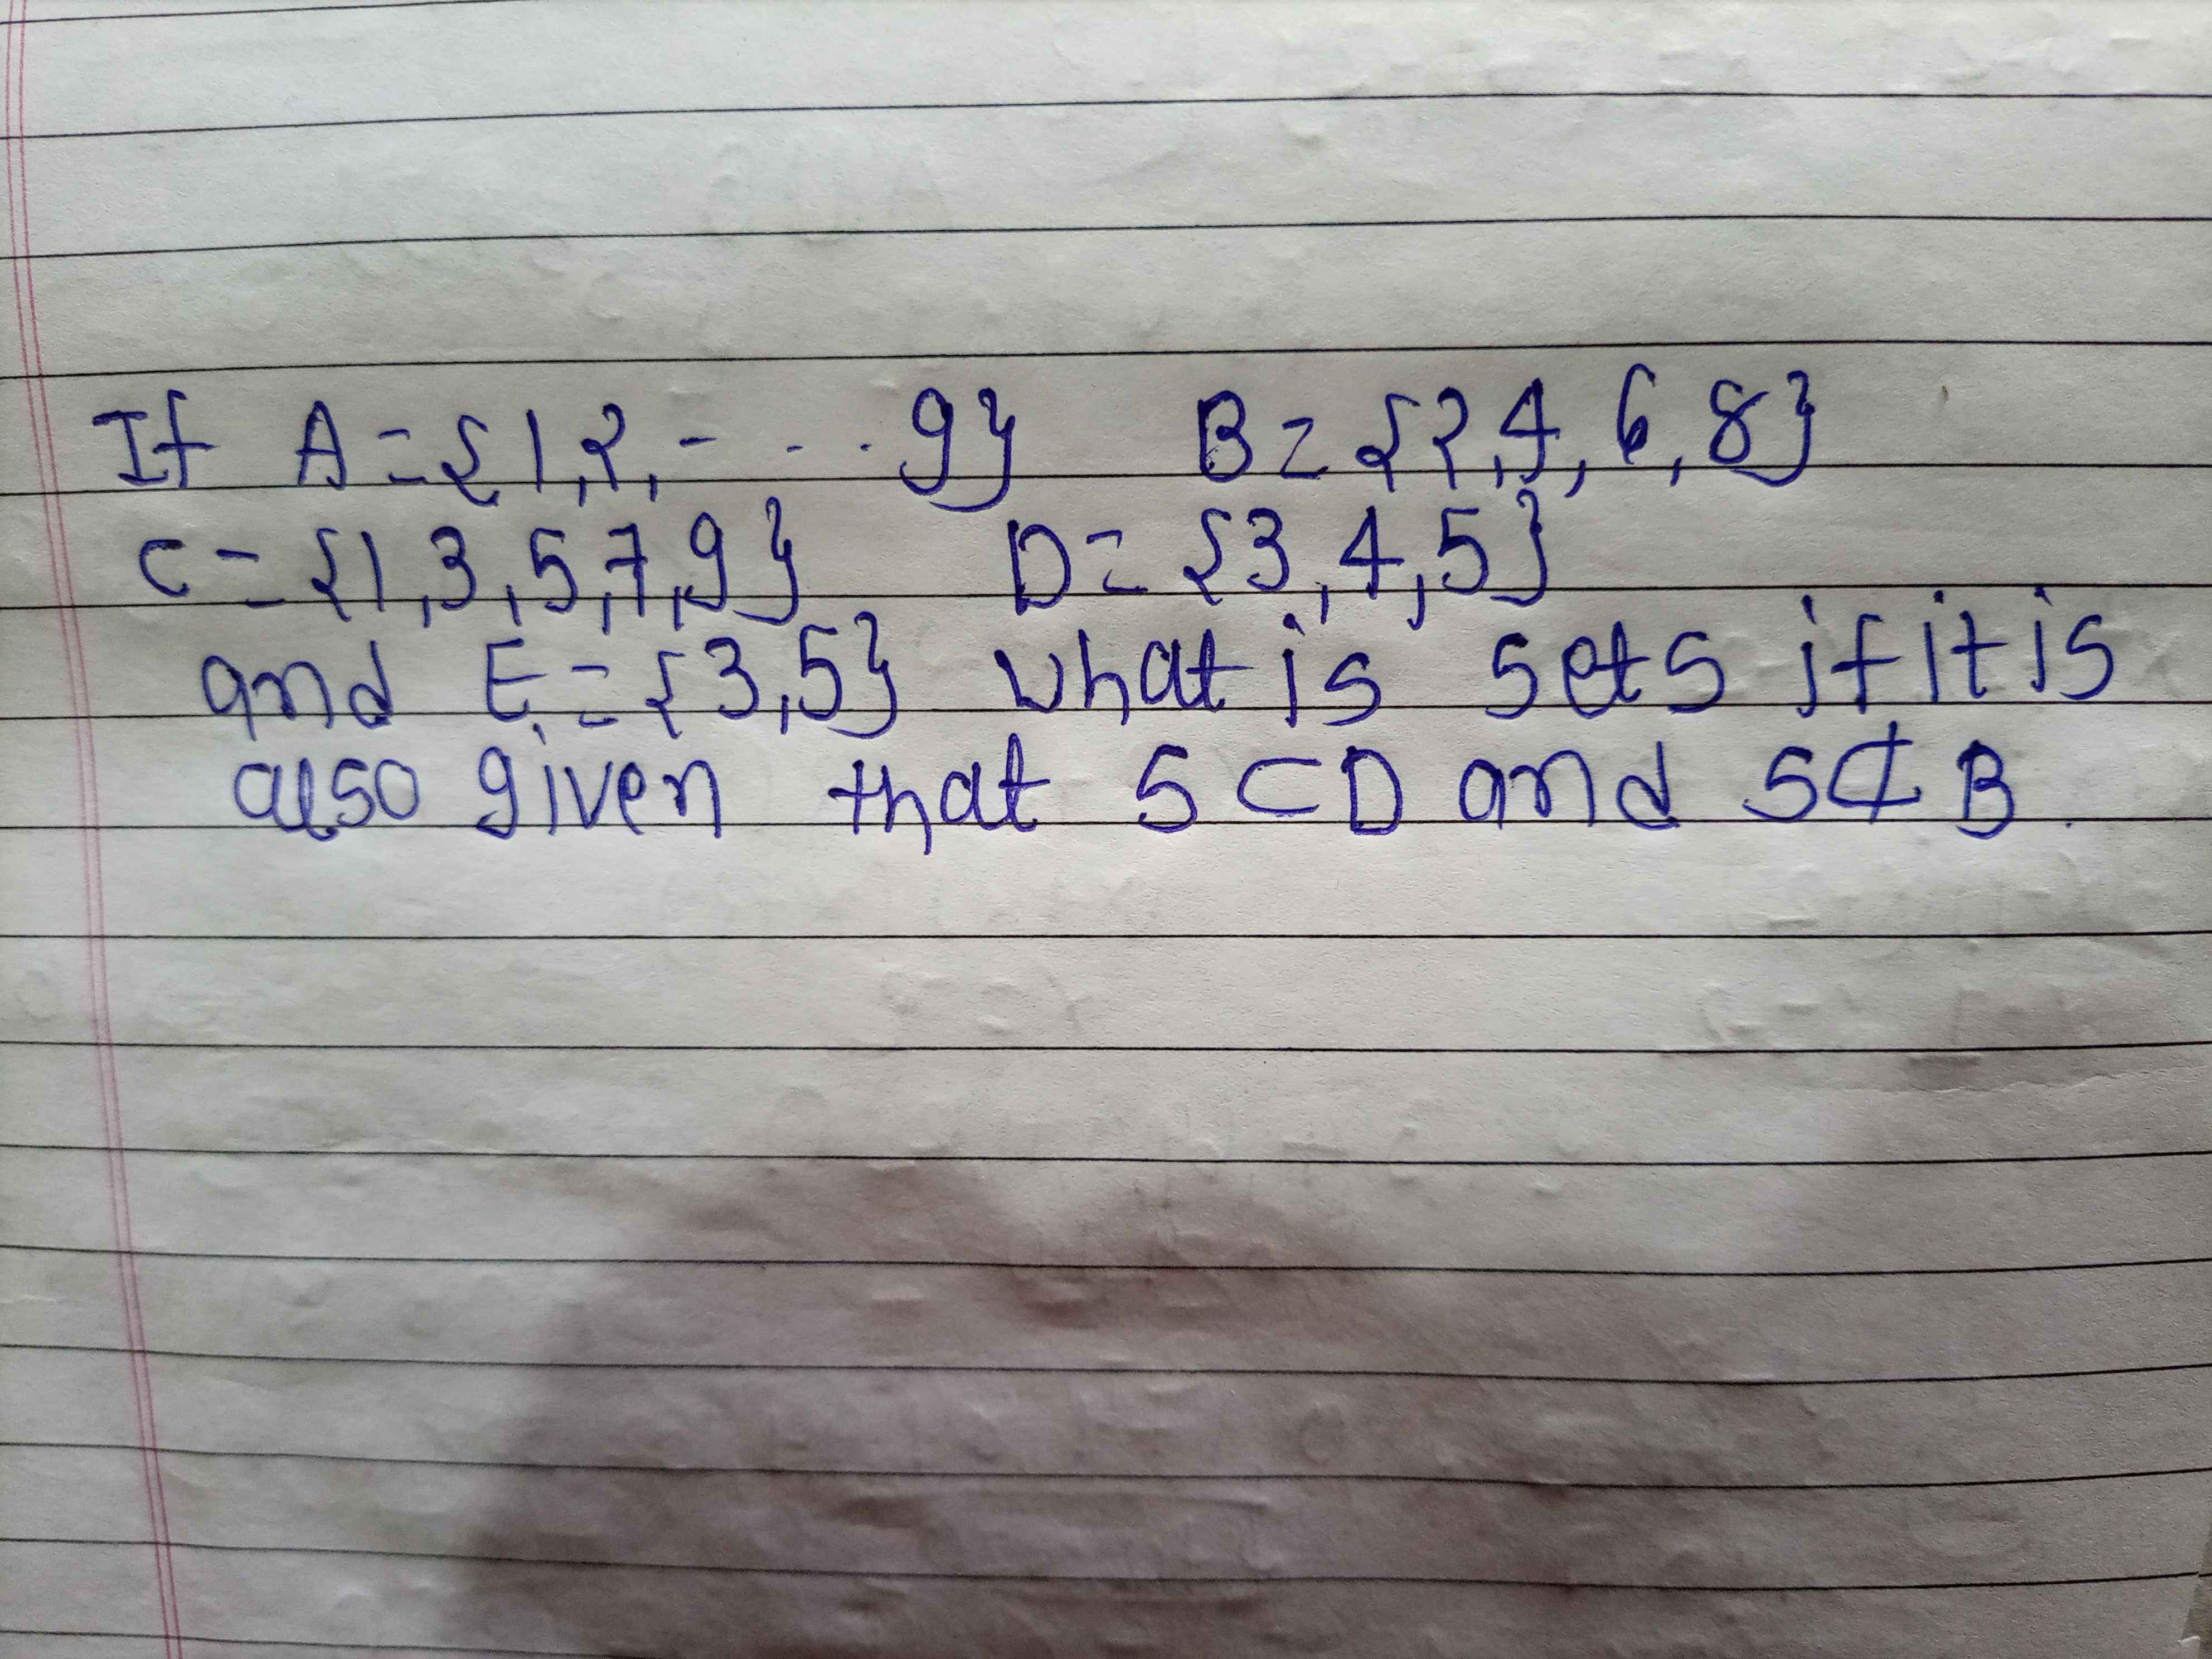 If A = {1, 2, - - . . 9} B = {2, 4, 6, 8}
C = {1, 3, 5, 7, 9} D = {3, 4, 5}
and E = {3, 5} what is sets if it is
also given that S ⊂ D and S ⊄ B.